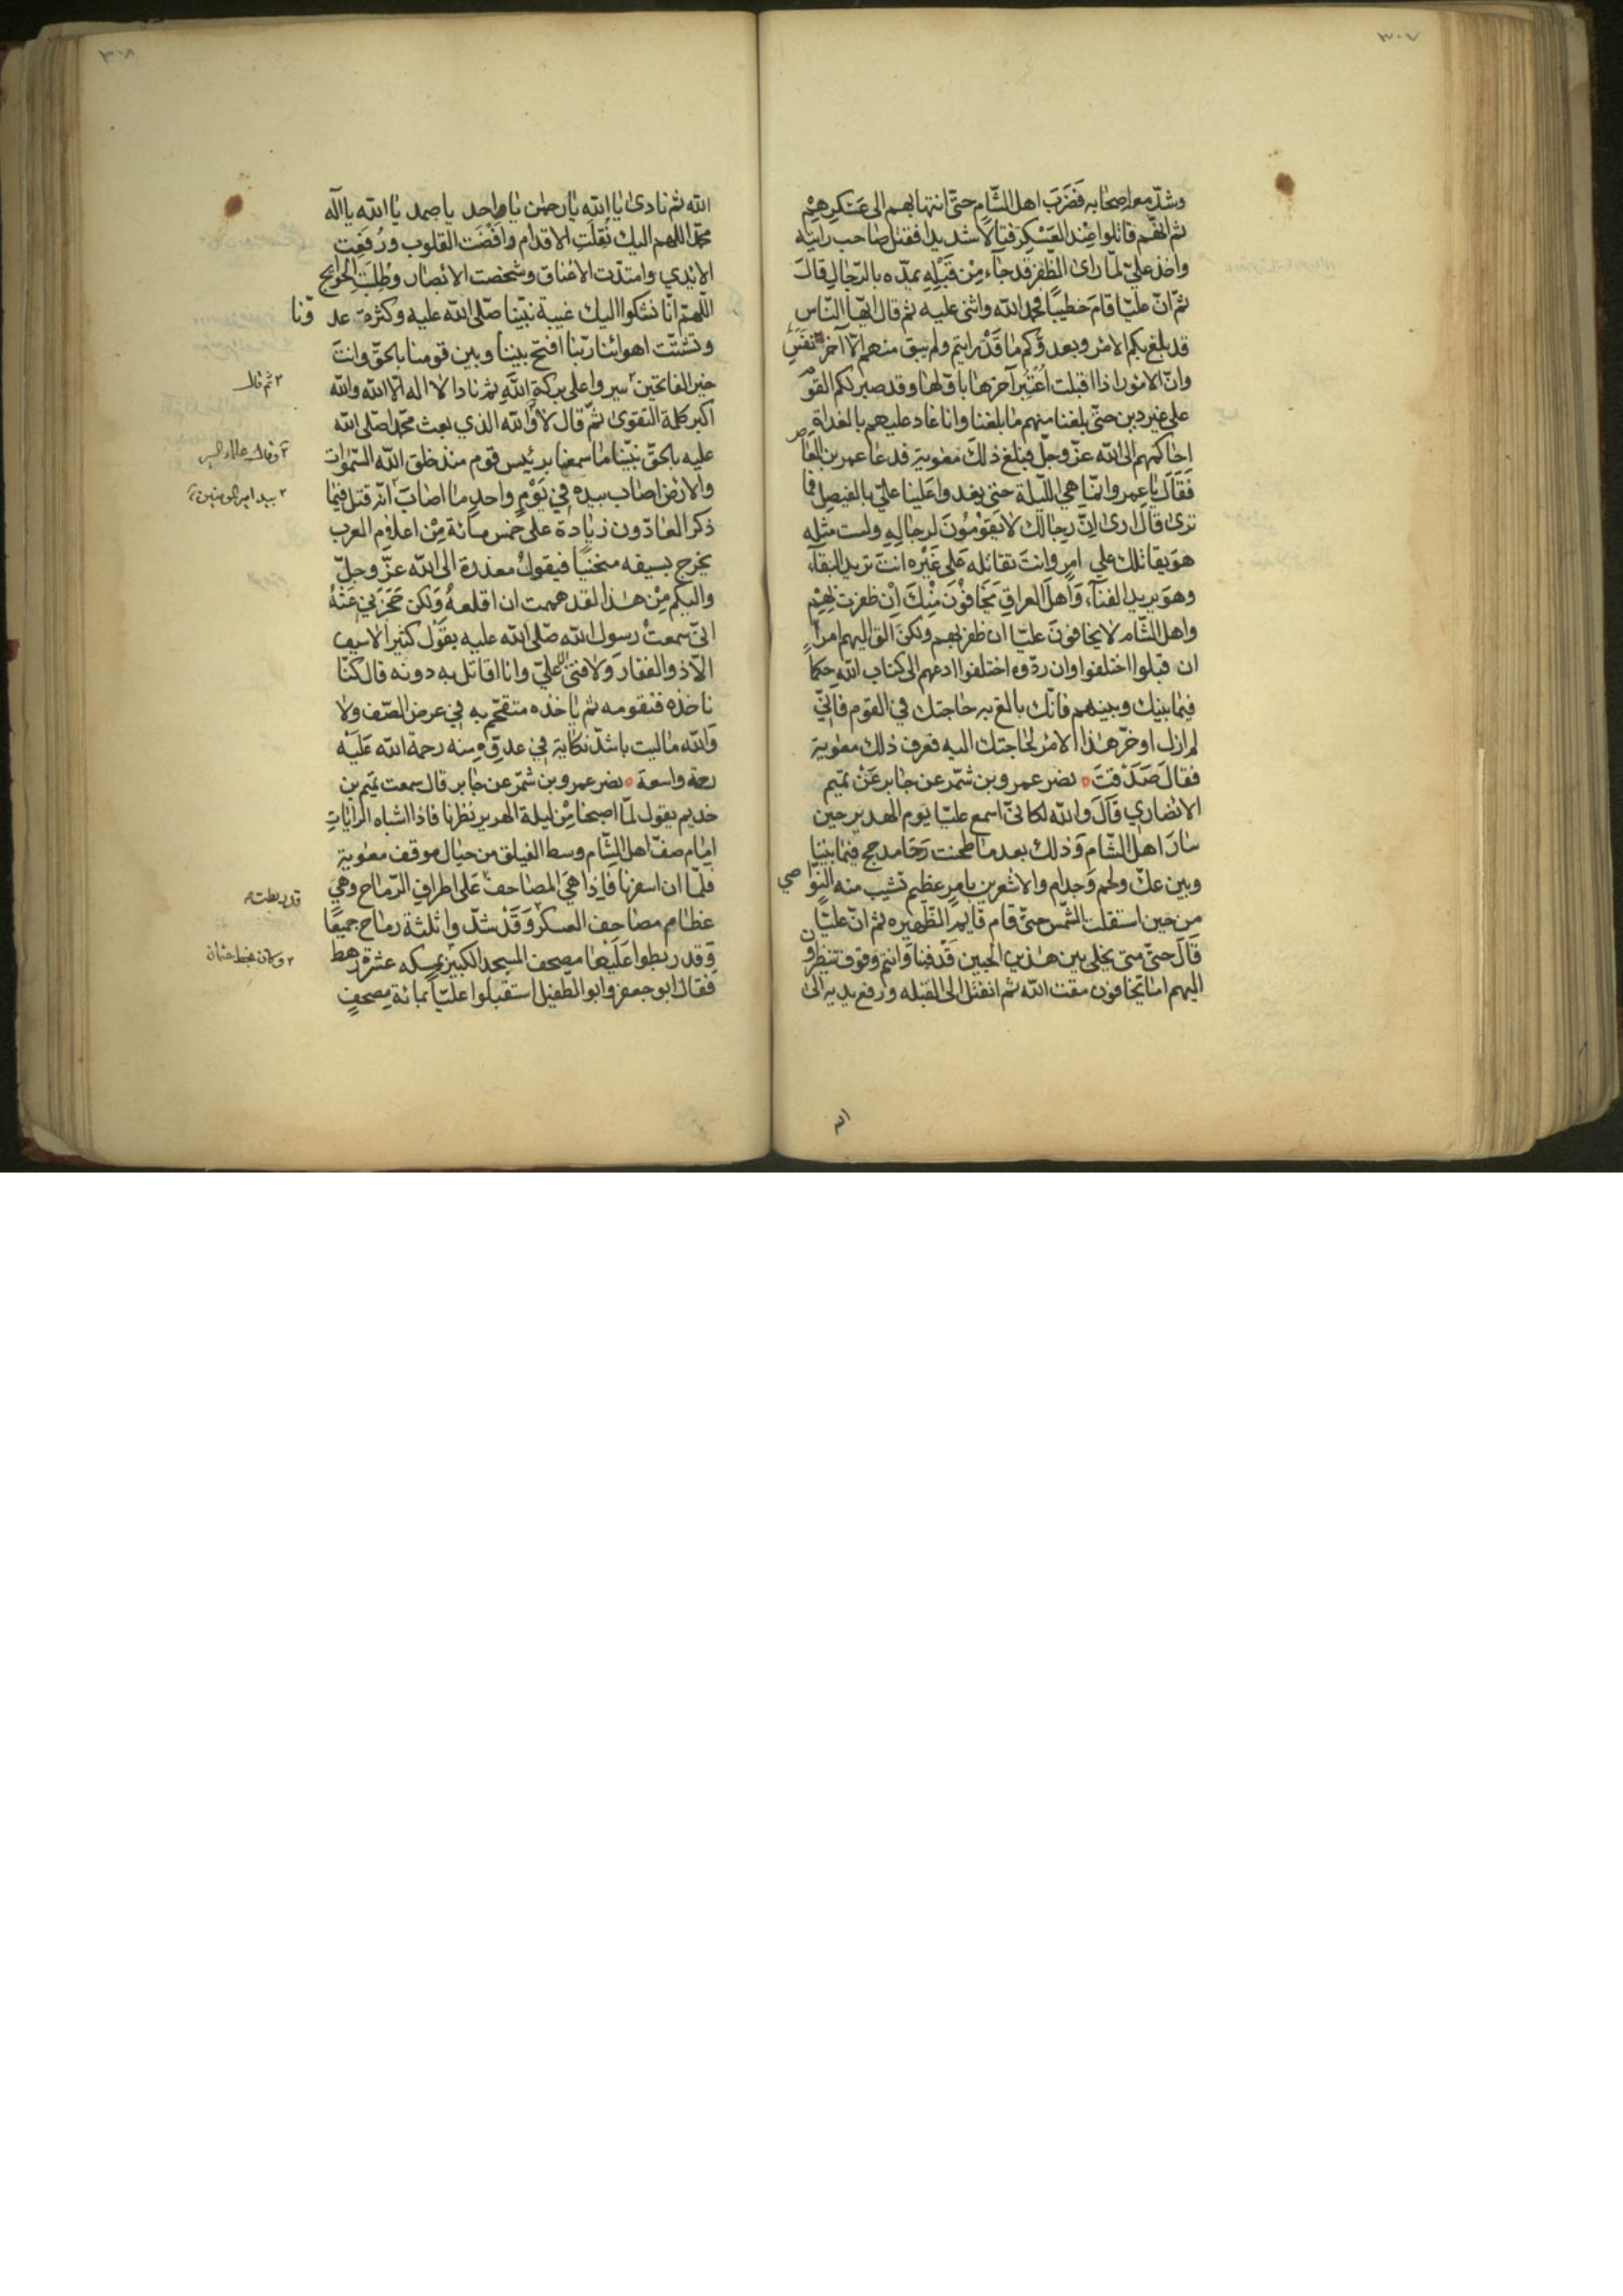 ٣٠٧
وشدّ معه اصحابه فَضَرَبَ اهل الشّام حتّى انتها بهم الى عَسْكَرِهِمْ
ثم انهّم قاتلوا عِنْد العَسْكِر قتالًا شديدا فقتل صاحب رايته
واخذ عليّ لمّا راى الظفر قد جاء مِنْ قَبَلِهِ يمدّه بالرّجال قالَ
ثمّ انّ عليّا قامَ خطيبًا فحمد الله واثنى عليه ثم قال ايّها النّاس
قد بلغ بكم الامْر وبعدوّكم ما قَدْ رايتم ولم يبق منهم الّا آخر نَفَسٍ
وانّ الامُور اذا اقبلت اُعْتُبِرَ آخرها باوّلها وقد صبر لكم القوم
على غير دين حتّى بلغنا منهم ما بلغنا وانا غاد عليهم بالغداة
احاكمهم الى الله عزّ وجلّ فبلغ ذلكَ معٰوية فدعا عمر بن العاص
فَقَالَ يا عمرو انّما هي اللّيلة حتى يغدوا علينا عليّ بالفيصل فما
ترى قال ارى انّ رجالك لا يَقوْمُونَ لرجالِهِ ولست مثله
هوَ يقاتلك على امرٍ وانتَ تقاتله عَلى غَيْره انتَ تريد البقآء
وهوَ يريد الفنآء وَاهل العراقِ يَخافوْنَ مِنْكَ اِنْ ظفرت بِهِمْ
واهل الشّام لا يخافونَ عليّا ان ظفر بهم ولكنْ القِ اليهم امرًا
ان قبلوا اختلفوا وان ردّوه اختلفوا ادعهم الى كتاب الله حكمًا
فيما بينك وبينهم فانّك بالغ به حاجتك في القوم فانّي
لم ازل اوخّر هذا الامْر لحاجتك اليه فعرف ذلك معٰوية
فقال صَدَقْتَ نصر عمرو بن شمّر عن جابر عَنْ تميم
الانصاري قالَ والله لكانّى اسمع عليّا يوم الهدير حين
سارَ اهل الشّام وَذلك بعد ما طحنت رَحَا مدحج فيما بيننا
وبين عكّ ولخم وَجدام والاشعرين بامرٍ عظيم تشيب منه النوّاصي
من حين استقلت الشّمس حتىّ قام قايم الظّهيره ثم انّ عليّا
قال حتّى متى يخلى بين هذين الحيين قَدْ فنيا وَانتم وقوف تنظرون
اليهم اما تخافون مقت الله ثم انفتل الى القبله ورفع يديه الى
٣٠٨
الله ثم نادى يا الله يا رحمن يا واحد يا صمد يا الله يا اله
محمّد اللهم اليك نُقِلَتِ الاقدام وافْضَت القلوب ورُفِعَت
الايْدي وامتدّت الاعْناق وشخصت الابْصار وطُلِبَتِ الحوائج
اللّهم انّا نشكوا اليك غيبة نبيّنا صلّى الله عليه وكثرة عدوّنا
وتشتّت اهوائنا ربّنا افتح بيننا وبين قومنا بالحقّ وانتَ
خير الفاتحين سيروا على بركة الله ثم نادا لا اله الّا الله والله
ثم قال
اكبر كلمة التقوى ثمّ قال لا وَالله الذي بعث محمّدا صلّى الله
عليه بالحقّ نبيّنا ما سمعنا برئيس قوم منذ خلق الله السّمٰوات
والارض اصاب بيده في يَوْمٍ واحدٍ ما اصابَ انّه قتل فيما
بيد امير المومنين
ذكر العادّون زيادة على خمس مائة مِنْ اعلام العرب
يخرج بسيفه منحنيًا فيقولُ معذرة الى الله عزَّ وجلّ
واليكم مِنْ هٰذا لقد هممت ان اقلعهُ وَلكن حَجَزَني عَنْهُ
انّى سمعتُ رسول الله صّلى الله عليه يقول كثيرا لا سيف
الّا ذو الفقار وَلا فتى الا عليّ وانا اقاتل به دونه قال كنّا
ناخذه فنقومه ثم ياخذه متقحّم به في عرض الصّف ولا
وَالله ما ليت باشدّ نكاية في عدوّه منه رحمة الله عَلَيْه
رحمة واسعة نصر عمرو بن شمّر عن جابر قال سمعت تميم بن
خديم يقول لمّا اصبحنا مِنْ ليلة الهرير نظرنا فاذا اشباه الرايات
امام صفّ اهل الشّام وسط الفيلق من حيال موقف معٰوية
فلمّا ان اسفرنا فاذا هيَ المصاحف عَلى اطراف الرّماح وهيَ
عظام مصاحف العسكر وَقَدْ شدّوا ثلثة رماح جميعًا
قد ربطت
وَقد ربطوا عَلَيْها مصحف المسجد الكبير يمسكه عشرة رهط
فقال ابو جعفر وابو الطفيل استقبلوا عليّا بمائة مصحفٍ